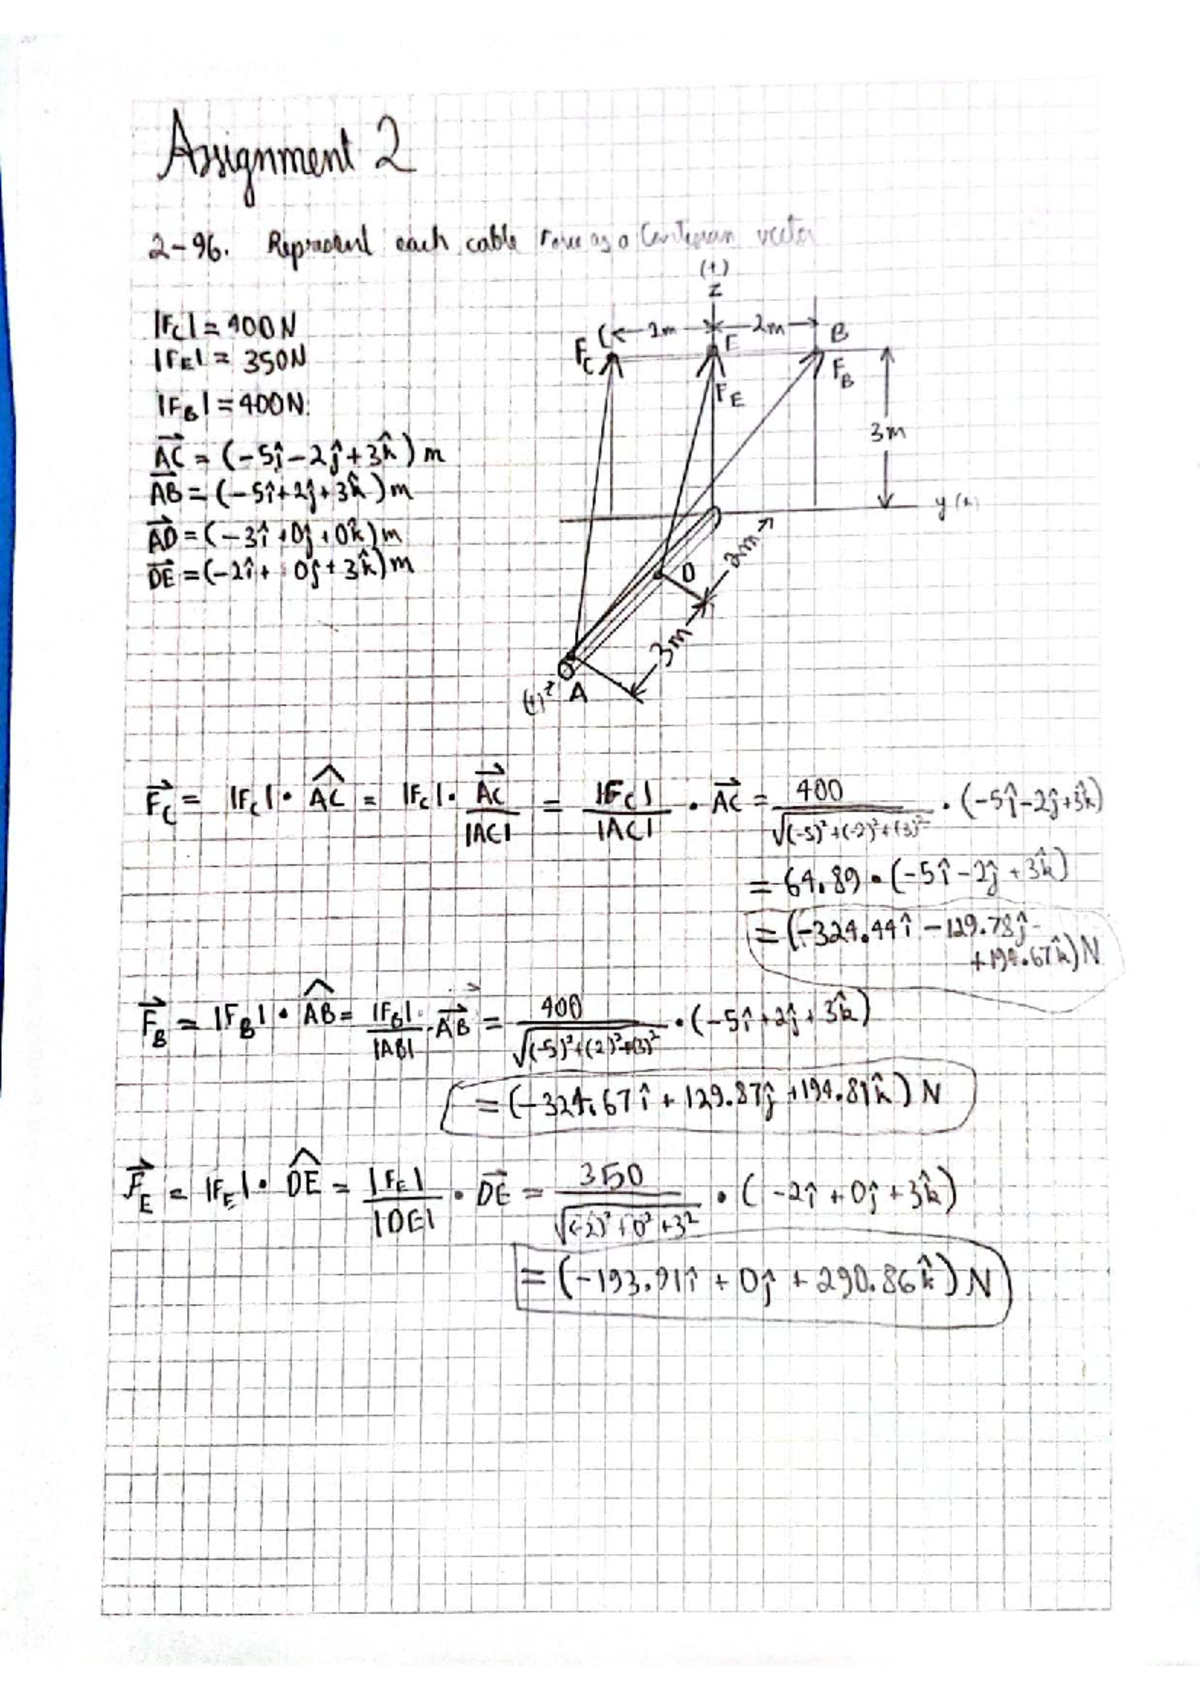 Assignment 2
2-96. Represent each cable Force as a Cartesian vector
|F_C| = 400N
|F_E| = 350N
|F_B| = 400N
AC→ = (-5ĵ - 2ĵ + 3k̂) m
AB→ = (-5î + 2ĵ + 3k̂) m
AD→ = (-3î + 0ĵ + 0k̂) m
DE→ = (-2î + 0ĵ + 3k̂) m
(+)
z
C 2m 2m B
F_C E F_B
F_E
3m
y (+)
D
2m
3m
A
F_C→ = |F_C| · AC^ = |F_C| · AC→/|AC| = |F_C|/|AC| · AC→ = 400/√((-5)²+(-2)²+(3)²) · (-5î - 2ĵ + 3k̂)
= 64.89 · (-5î - 2ĵ + 3k̂)
= (-324.44î - 129.78ĵ
+ 194.67k̂) N
F_B→ = |F_B| · AB^ = |F_B|/|AB| · AB→ = 400/√((-5)²+(2)²+(3)²) · (-5î + 2ĵ + 3k̂)
= (-324.67î + 129.87ĵ + 194.81k̂) N
F_E→ = |F_E| · DE^ = |F_E|/|DE| · DE→ = 350/√((-2)²+0²+3²) · (-2î + 0ĵ + 3k̂)
= (-193.91î + 0ĵ + 290.86k̂) N